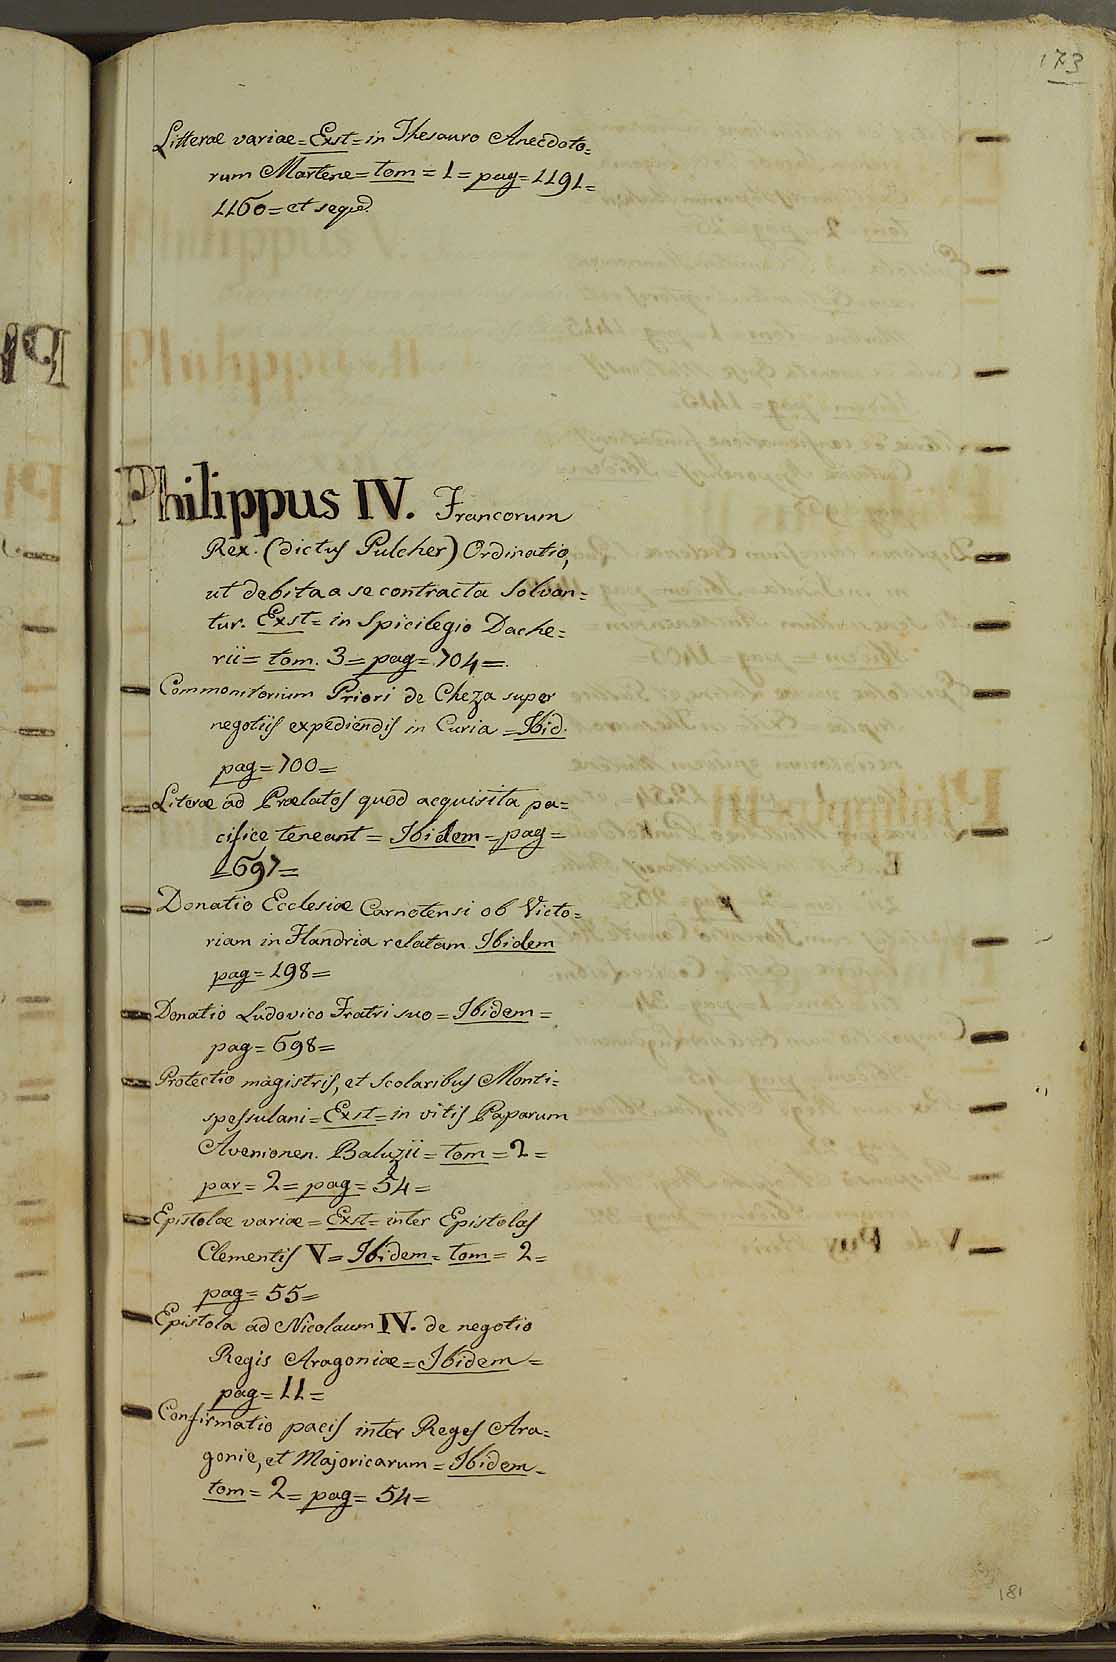 173
Litteræ variae = Exst = in Thesauro Anecdoto=
rum Martene = tom = 1 = pag = 1191 =
1160 = et seqd.
Philippus IV. Francorum
Rex. (dictus Pulcher) Ordinatio,
ut debita a se contracta solvan=
tur. Exst = in Spicilegio Dache=
rii = tom. 3 = pag = 704 =
Commonitorium Priori de Cheza super
negotiis expediendis in Curia = Ibid.
pag = 700 =
Literæ ad Prælatos quod acquisita pa=
cifice teneant = Ibidem = pag =
= 697 =
Donatio Ecclesiæ Carnotensi ob Victo=
riam in Flandria relatam Ibidem
pag = 198 =
Donatio Ludovico Fratri suo = Ibidem =
pag = 698 =
Protectio magistris, et Scolaribus Monti=
spessulani = Exst = in vitis Paparum
Avenionen. Baluzii = tom = 2 =
par = 2 = pag = 54 =
Epistolæ variæ = Exst = inter Epistolas
Clementis V = Ibidem = tom = 2 =
pag = 55 =
Epistola ad Nicolaum IV. de negotio
Regis Aragoniæ = Ibidem =
pag = 11 =
Confirmatio pacis inter Reges Ara=
gonie, et Majoricarum = Ibidem =
tom = 2 = pag = 54 =
181